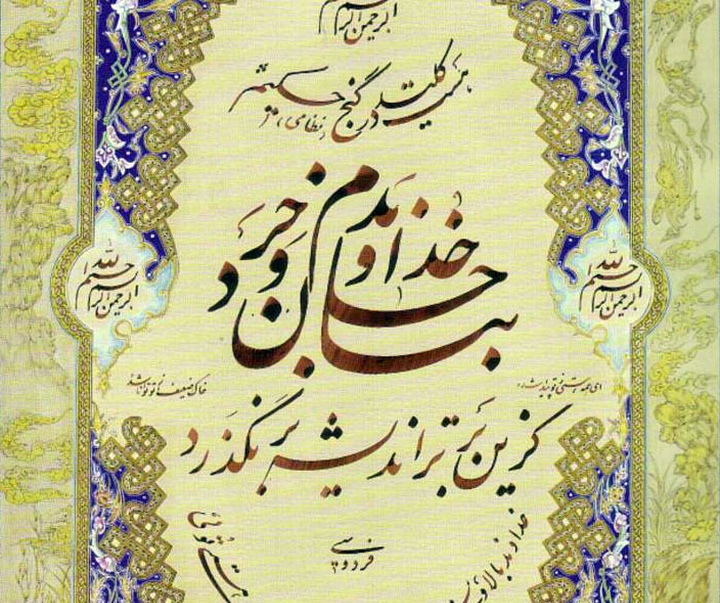 الرحمن الرحیم
هست کلید در گنج حکیم
(نظامی)
بنام خداوند جان و خرد
بسم الله الرحمن الرحیم
بسم الله الرحمن الرحیم
ای همه هستی ز تو پیدا شده
خاک ضعیف از تو توانا شده
کزین برتر اندیشه بر نگذرد
فردوسی
خداوند بالا و